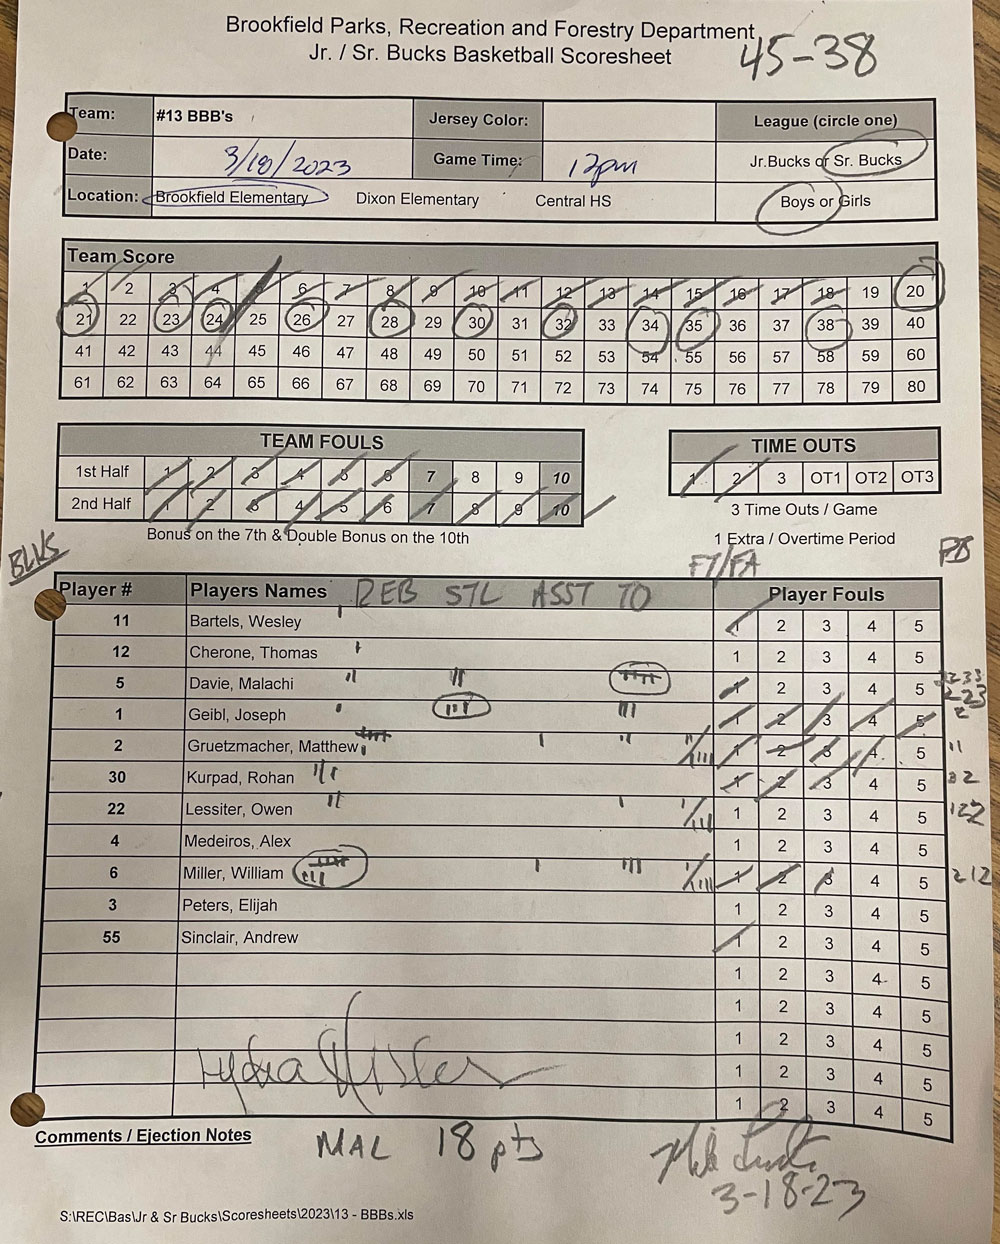 Brookfield Parks, Recreation and Forestry Department
Jr. / Sr. Bucks Basketball Scoresheet
45-38
Team: #13 BBB's Jersey Color: League (circle one)
Date: 3/18/2023 Game Time: 12pm Jr.Bucks or Sr. Bucks
Location: Brookfield Elementary Dixon Elementary Central HS Boys or Girls
Team Score
1 2 3 4 5 6 7 8 9 10 11 12 13 14 15 16 17 18 19 20
21 22 23 24 25 26 27 28 29 30 31 32 33 34 35 36 37 38 39 40
41 42 43 44 45 46 47 48 49 50 51 52 53 54 55 56 57 58 59 60
61 62 63 64 65 66 67 68 69 70 71 72 73 74 75 76 77 78 79 80
TEAM FOULS
1st Half 1 2 3 4 5 6 7 8 9 10
2nd Half 1 2 3 4 5 6 7 8 9 10
Bonus on the 7th & Double Bonus on the 10th
TIME OUTS
1 2 3 OT1 OT2 OT3
3 Time Outs / Game
1 Extra / Overtime Period
BLKS FT/FA
Player # Players Names REB STL ASST TO Player Fouls
11 Bartels, Wesley 1 2 3 4 5
12 Cherone, Thomas 1 2 3 4 5
5 Davie, Malachi 1 2 3 4 5
1 Geibl, Joseph 1 2 3 4 5 2
2 Gruetzmacher, Matthew 1 2 3 4 5 11
30 Kurpad, Rohan 1 2 3 4 5
22 Lessiter, Owen 1 2 3 4 5 122
4 Medeiros, Alex 1 2 3 4 5
6 Miller, William 1 2 3 4 5 212
3 Peters, Elijah 1 2 3 4 5
55 Sinclair, Andrew 1 2 3 4 5
1 2 3 4 5
1 2 3 4 5
1 2 3 4 5
Lydia 1 2 3 4 5
1 2 3 4 5
Comments / Ejection Notes
MAL 18 pts
3-18-23
S:\REC\Bas\Jr & Sr Bucks\Scoresheets\2023\13 - BBBs.xls